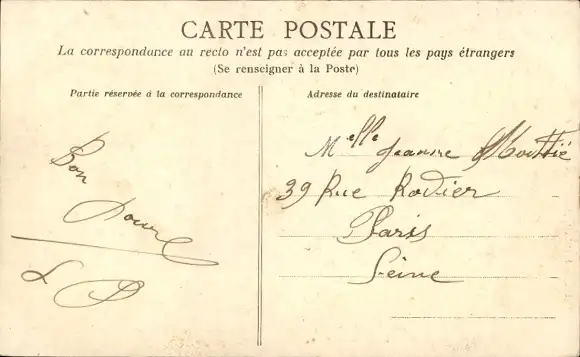 CARTE POSTALE
La correspondance au recto n'est pas acceptée par tous les pays étrangers
(Se renseigner à la Poste)
Partie réservée à la correspondance
Adresse du destinataire
Bon
L
Melle Jeanne
39 Rue Rodier
Paris
Seine